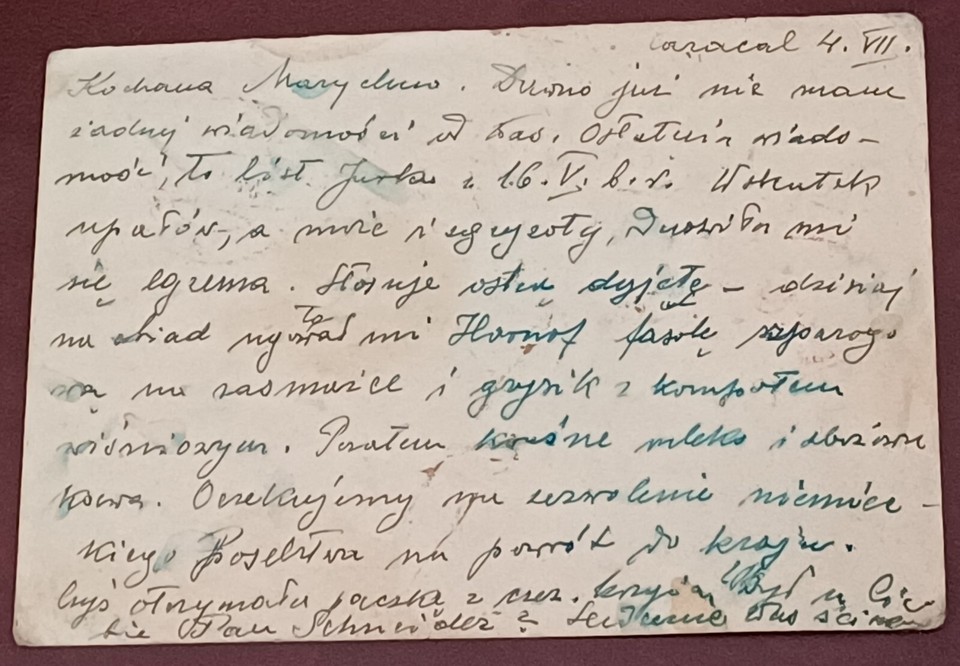 Caracal 4. VII.
Kochana Marychno. Dawno już nie mam
żadnej wiadomości od Was. Ostatnia wiado-
mość, to list Jurka z 16. V. b. r. Wskutek
upałów, a może i zgryzoty, odnowiła mi
się egzema. Stosuję ostrą dyjetę – dzisiaj
na obiad ugotował mi Hornof fasolę szparago
wą na zasmażce i grysik z kompotem
wiśniowym. Poza tem kwaśne mleko i zbożowa
kawa. Oczekujemy na zezwolenie niemiec-
kiego Poselstwa na powrót do kraju.
Czyś otrzymała paczkę z czer. krzyża, Był u Cie
bie Pan Schneider? Serdecznie Was ściskam